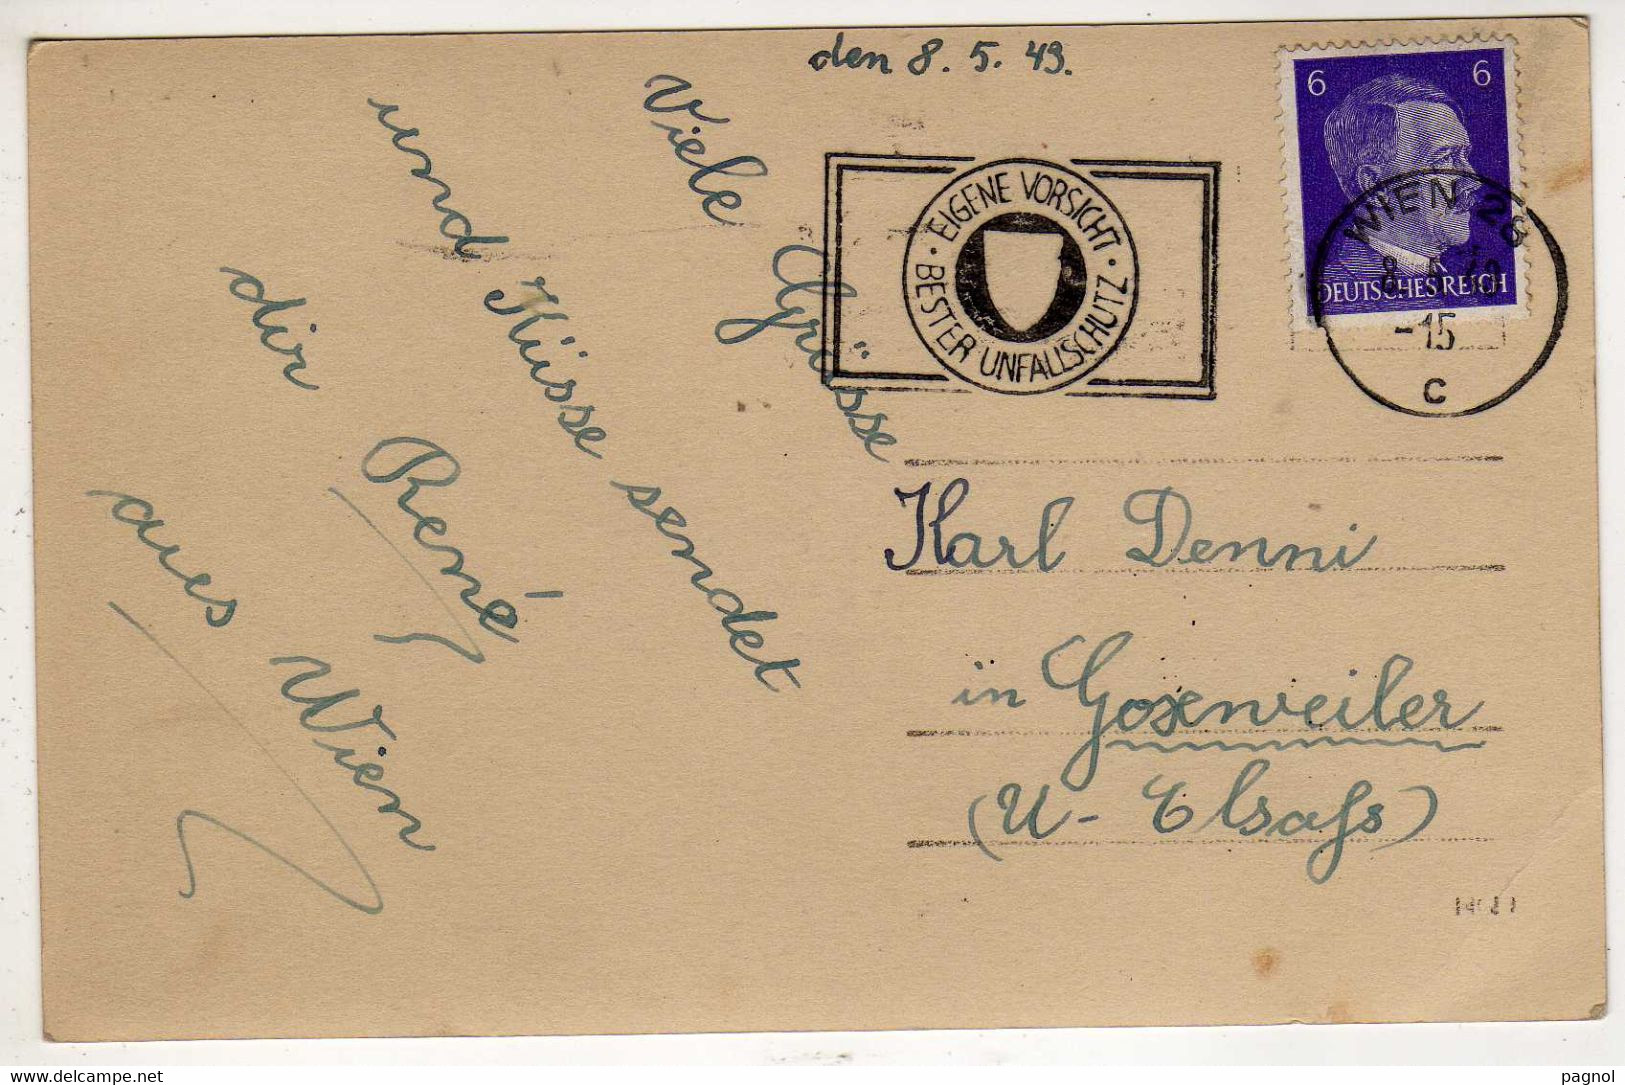 den 8. 5. 43.
Viele Grüsse
und Küsse sendet
dir René
aus Wien
EIGENE VORSICHT · BESTER UNFALLSCHUTZ ·
6 6
DEUTSCHES REICH
WIEN 28
8. 5.
-15
c
Karl Denni
in Goxenweiler
(U- Elsaſs)
delcampe.net
pagnol